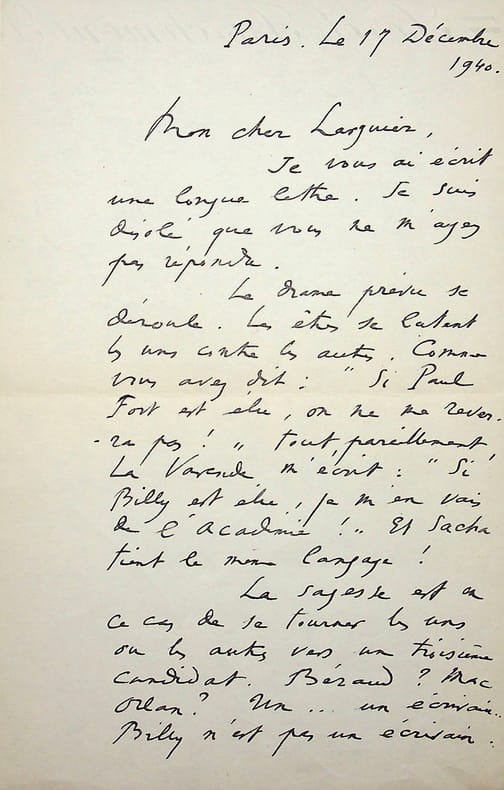 Paris. Le 17 Décembre
1940.
Mon cher Larguier,
Je vous ai écrit
une longue lettre. Je suis
désolé que vous ne m'ayez
pas répondu.
Le drame prévu se
déroule. Les êtres se battent
les uns contre les autres. Comme
vous avez dit : " Si Paul
Fort est élu, on ne me rever-
-ra pas ! " tout pareillement,
La Varende m'écrit : " Si
Billy est élu, je m'en vais
de l'Académie ! " Et Sacha
tient le même langage !
La sagesse est en
ce cas de se tourner les uns
ou les autres vers un troisième
candidat. Béraud ? Mac
Orlan ? Un ... un écrivain.
Billy n'est pas un écrivain.